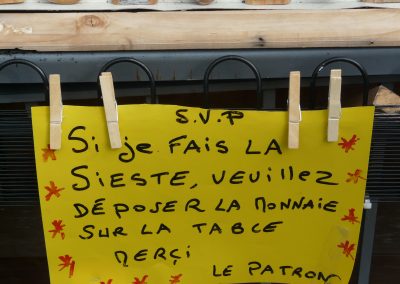 S.V.P
Si je FAIS LA
SIESTE, VEUILLEZ
DÉPOSER LA MONNAIE
SUR LA TABLE
MERÇI
LE PATRON